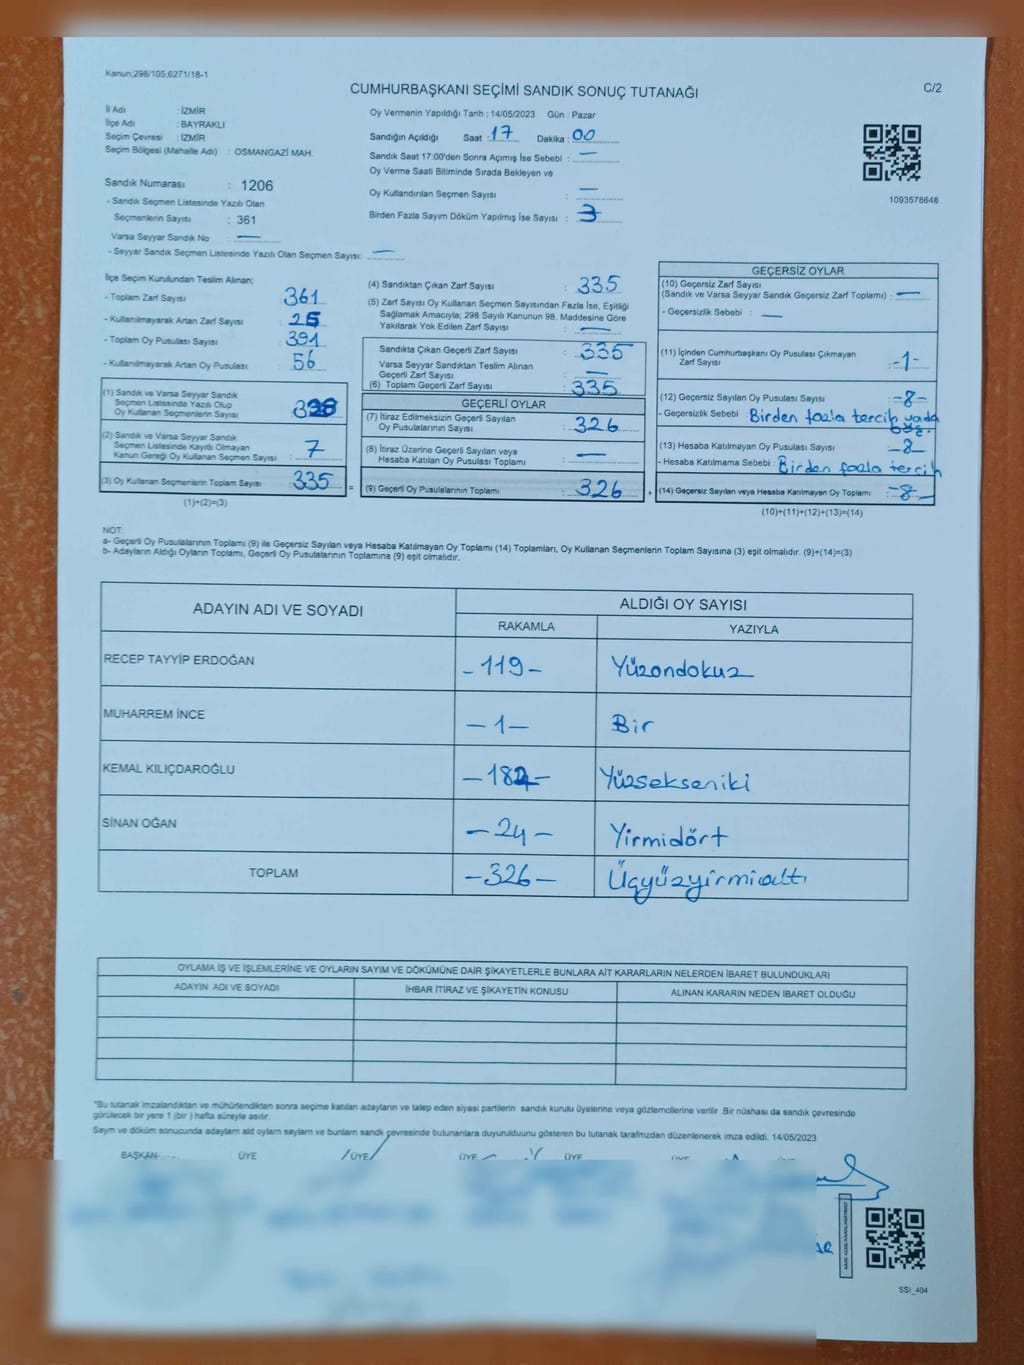 Kanun;298/105,6271/18-1
CUMHURBAŞKANI SEÇİMİ SANDIK SONUÇ TUTANAĞI
C/2
İl Adı : İZMİR
İlçe Adı : BAYRAKLI
Seçim Çevresi : İZMİR
Seçim Bölgesi (Mahalle Adı) : OSMANGAZİ MAH.
Sandık Numarası : 1206
- Sandık Seçmen Listesinde Yazılı Olan
Seçmenlerin Sayısı : 361
Varsa Seyyar Sandık No —
- Seyyar Sandık Seçmen Listesinde Yazılı Olan Seçmen Sayısı: —
Oy Vermenin Yapıldığı Tarih : 14/05/2023 Gün : Pazar
Sandığın Açıldığı Saat : 17 Dakika : 00
Sandık Saat 17:00'den Sonra Açımış İse Sebebi : —
Oy Verme Saati Bitiminde Sırada Bekleyen ve
Oy Kullandırılan Seçmen Sayısı : —
Birden Fazla Sayım Döküm Yapılmış İse Sayısı : 3
1093578648
İlçe Seçim Kurulundan Teslim Alınan;
- Toplam Zarf Sayısı 361
- Kullanılmayarak Artan Zarf Sayısı : 26
- Toplam Oy Pusulası Sayısı : 391
- Kullanılmayarak Artan Oy Pusulası : 56
(1) Sandık ve Varsa Seyyar Sandık
Seçmen Listesinde Yazılı Olup
Oy Kullanan Seçmenlerin Sayısı : 328
(2) Sandık ve Varsa Seyyar Sandık
Seçmen Listesinde Kayıtlı Olmayan
Kanun Gereği Oy Kullanan Seçmen Sayısı : 7
(3) Oy Kullanan Seçmenlerin Toplam Sayısı : 335
(1)+(2)=(3)
(4) Sandıktan Çıkan Zarf Sayısı : 335
(5) Zarf Sayısı Oy Kullanan Seçmen Sayısından Fazla İse, Eşitliği
Sağlamak Amacıyla; 298 Sayılı Kanunun 98. Maddesine Göre
Yakılarak Yok Edilen Zarf Sayısı : —
Sandıkta Çıkan Geçerli Zarf Sayısı : 335
Varsa Seyyar Sandıktan Teslim Alınan
Geçerli Zarf Sayısı : —
(6) Toplam Geçerli Zarf Sayısı : 335
GEÇERLİ OYLAR
(7) İtiraz Edilmeksizin Geçerli Sayılan
Oy Pusulalarının Sayısı : 326
(8) İtiraz Üzerine Geçerli Sayılan veya
Hesaba Katılan Oy Pusulası Toplamı : —
= (9) Geçerli Oy Pusulalarının Toplamı : 326
GEÇERSİZ OYLAR
(10) Geçersiz Zarf Sayısı
(Sandık ve Varsa Seyyar Sandık Geçersiz Zarf Toplamı) : —
- Geçersizlik Sebebi : —
(11) İçinden Cumhurbaşkanı Oy Pusulası Çıkmayan
Zarf Sayısı : -1-
(12) Geçersiz Sayılan Oy Pusulası Sayısı : -8-
- Geçersizlik Sebebi : Birden fazla tercih yada
(13) Hesaba Katılmayan Oy Pusulası Sayısı : -8-
- Hesaba Katılmama Sebebi : Birden fazla tercih
+ (14) Geçersiz Sayılan veya Hesaba Katılmayan Oy Toplamı : -8-
(10)+(11)+(12)+(13)=(14)
NOT:
a- Geçerli Oy Pusulalarının Toplamı (9) ile Geçersiz Sayılan veya Hesaba Katılmayan Oy Toplamı (14) Toplamları, Oy Kullanan Seçmenlerin Toplam Sayısına (3) eşit olmalıdır. (9)+(14)=(3)
b- Adayların Aldığı Oyların Toplamı, Geçerli Oy Pusulalarının Toplamına (9) eşit olmalıdır.
ADAYIN ADI VE SOYADI
ALDIĞI OY SAYISI
RAKAMLA YAZIYLA
RECEP TAYYİP ERDOĞAN -119- Yüzondokuz
MUHARREM İNCE -1- Bir
KEMAL KILIÇDAROĞLU -182- Yüzsekseniki
SİNAN OĞAN -24- Yirmidört
TOPLAM -326- Üçyüzyirmialtı
OYLAMA İŞ VE İŞLEMLERİNE VE OYLARIN SAYIM VE DÖKÜMÜNE DAİR ŞİKAYETLERLE BUNLARA AİT KARARLARIN NELERDEN İBARET BULUNDUKLARI
ADAYIN ADI VE SOYADI İHBAR İTİRAZ VE ŞİKAYETİN KONUSU ALINAN KARARIN NEDEN İBARET OLDUĞU
*Bu tutanak imzalandıktan ve mühürlendikten sonra seçime katılan adayların ve talep eden siyasi partilerin sandık kurulu üyelerine veya gözlemcilerine verilir .Bir nüshası da sandık çevresinde
görülecek bir yere 1 (bir ) hafta süreyle asılır.
Sayım ve döküm sonucunda adayların ald oyların sayların ve bunların sandk çevresinde bulunanlara duyurulduunu gösteren bu tutanak tarafmzdan düzenlenerek imza edildi. 14/05/2023
BAŞKAN ÜYE ÜYE ÜYE ÜYE ÜYE ÜYE
SSI_404